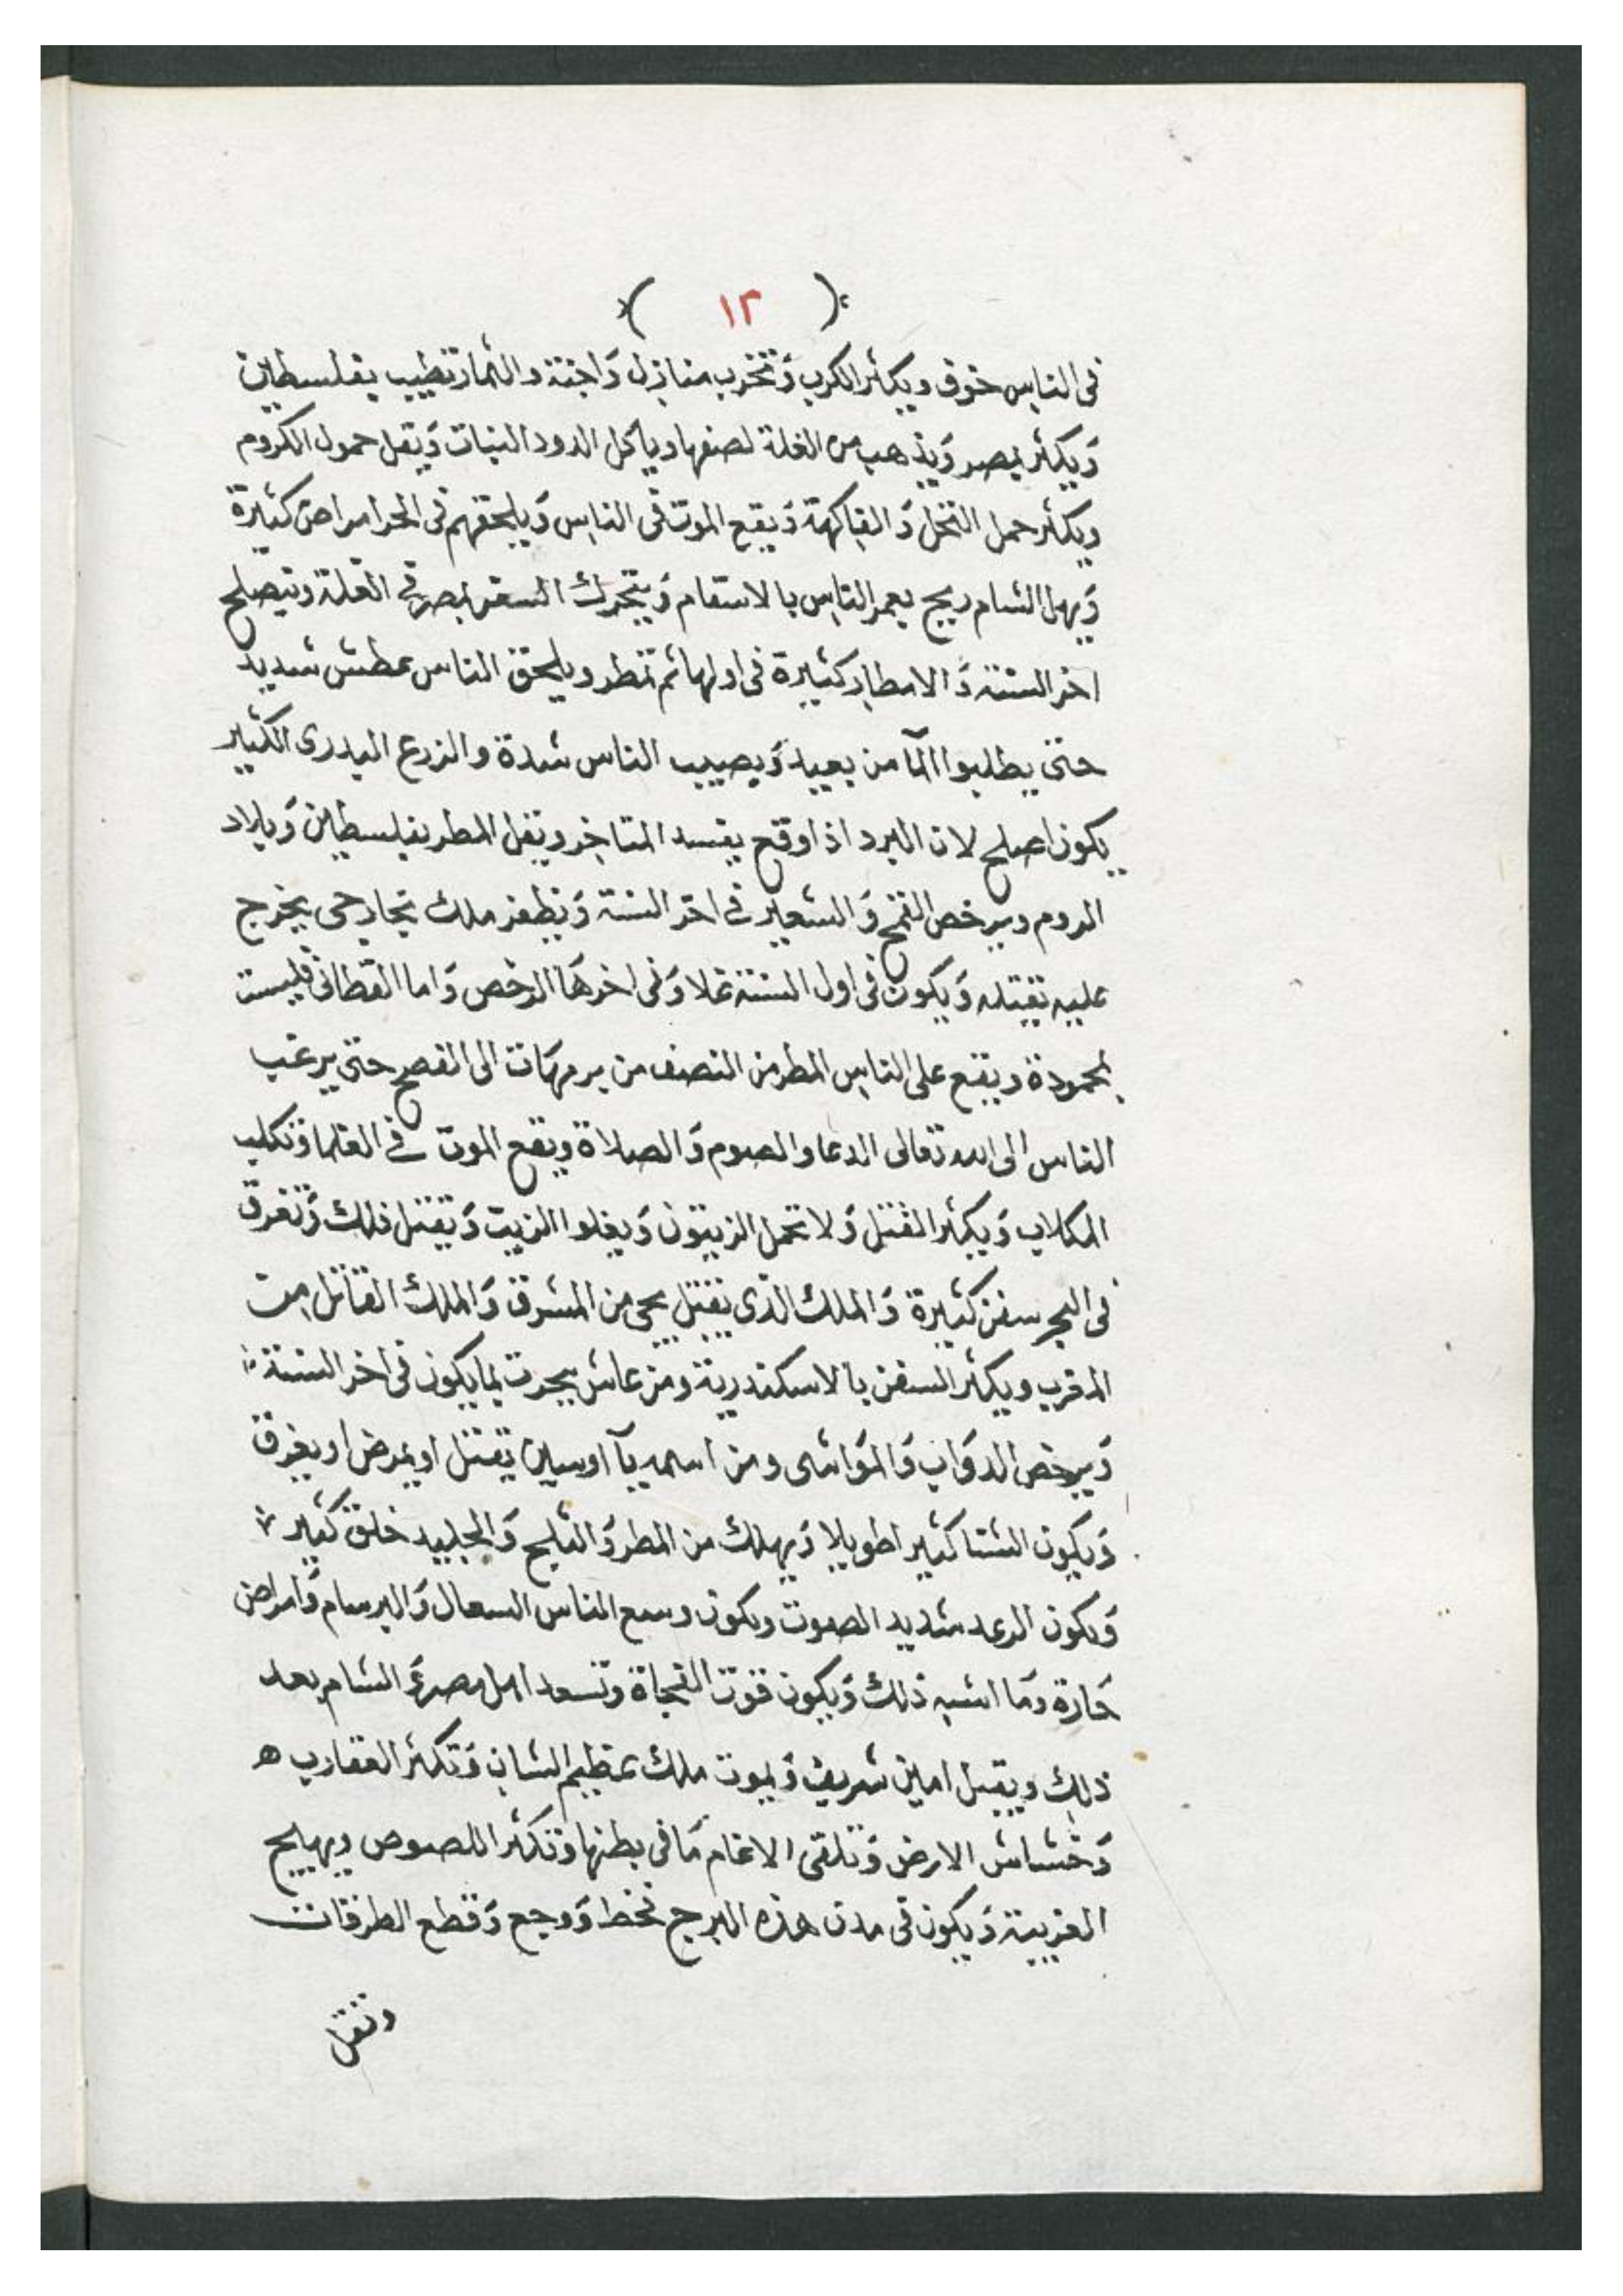 ( ١٢ )
فى الناس خوف ويكثر الكرب وتخرب منازل واجنة والثمار تطيب بفلسطين
ويكثر بمصر ويذهب من الغلة نصفها وياكل الدود النبات ويقل حمول الكروم
ويكثر حمل النخل والفاكهة ويقع الموت فى الناس ويلحقهم فى الحر امراض كثيرة
ويهل الشام ريح يعم الناس بالاسقام ويتحرك السعر بمصر فى الغلة وتيصلح
اخر السنة والامطار كثيرة فى اولها ثم تمطر ويلحق الناس عطش شديد
حتى يطلبوا المآ من بعيد ويصيب الناس شدة والزرع البدرى الكثير
يكون اصلح لان البرد اذا وقع يفسد المتاخر ويقل المطر بفلسطين وبلاد
الروم ويرخص القمح والشعير فى اخر السنة ويظفر ملك بخارجى يخرج
عليه يقتله ويكون فى اول السنة غلا وفى اخرها الرخص واما القطانى فليست
بمحمودة ويقع على الناس المطر من النصف من برمهات الى الفصح حتى يرغب
الناس الى الله تعالى الدعا والصوم والصلاة ويقع الموت فى العلما وتكلب
الكلاب ويكثر القتل ولا تحمل الزيتون ويغلوا الزيت ويقتل ذلك وتغرق
فى البحر سفن كثيرة والملك الذى يقتل يجى من المشرق والملك القاتل من
المغرب ويكثر السفن بالاسكندرية ومن عاش يحدث بما يكون فى اخر السنة
ويرخص الدواب والمواشى ومن اسمه يآ اوسين يقتل او يمرض او يغرق
ويكون الشتا كثير اطويلا ويهلك من المطر والثلج والجليد خلق كثير
ويكون الرعد شديد الصوت ويكون وسع الناس السعال والبرسام وامراض
حارة وما اشبه ذلك ويكون قوت الفجاة وتسعد اهل مصر والشام بعد
ذلك ويقتل امين شريف ويموت ملك عظيم الشان وتكثر العقارب ه
وخشاش الارض وتلقى الاغنام ما فى بطنها وتكثر اللصوص ويهايج
الغربية ويكون فى مدن هذه البرج قحط ووجع وقطع الطرقات
وتقل